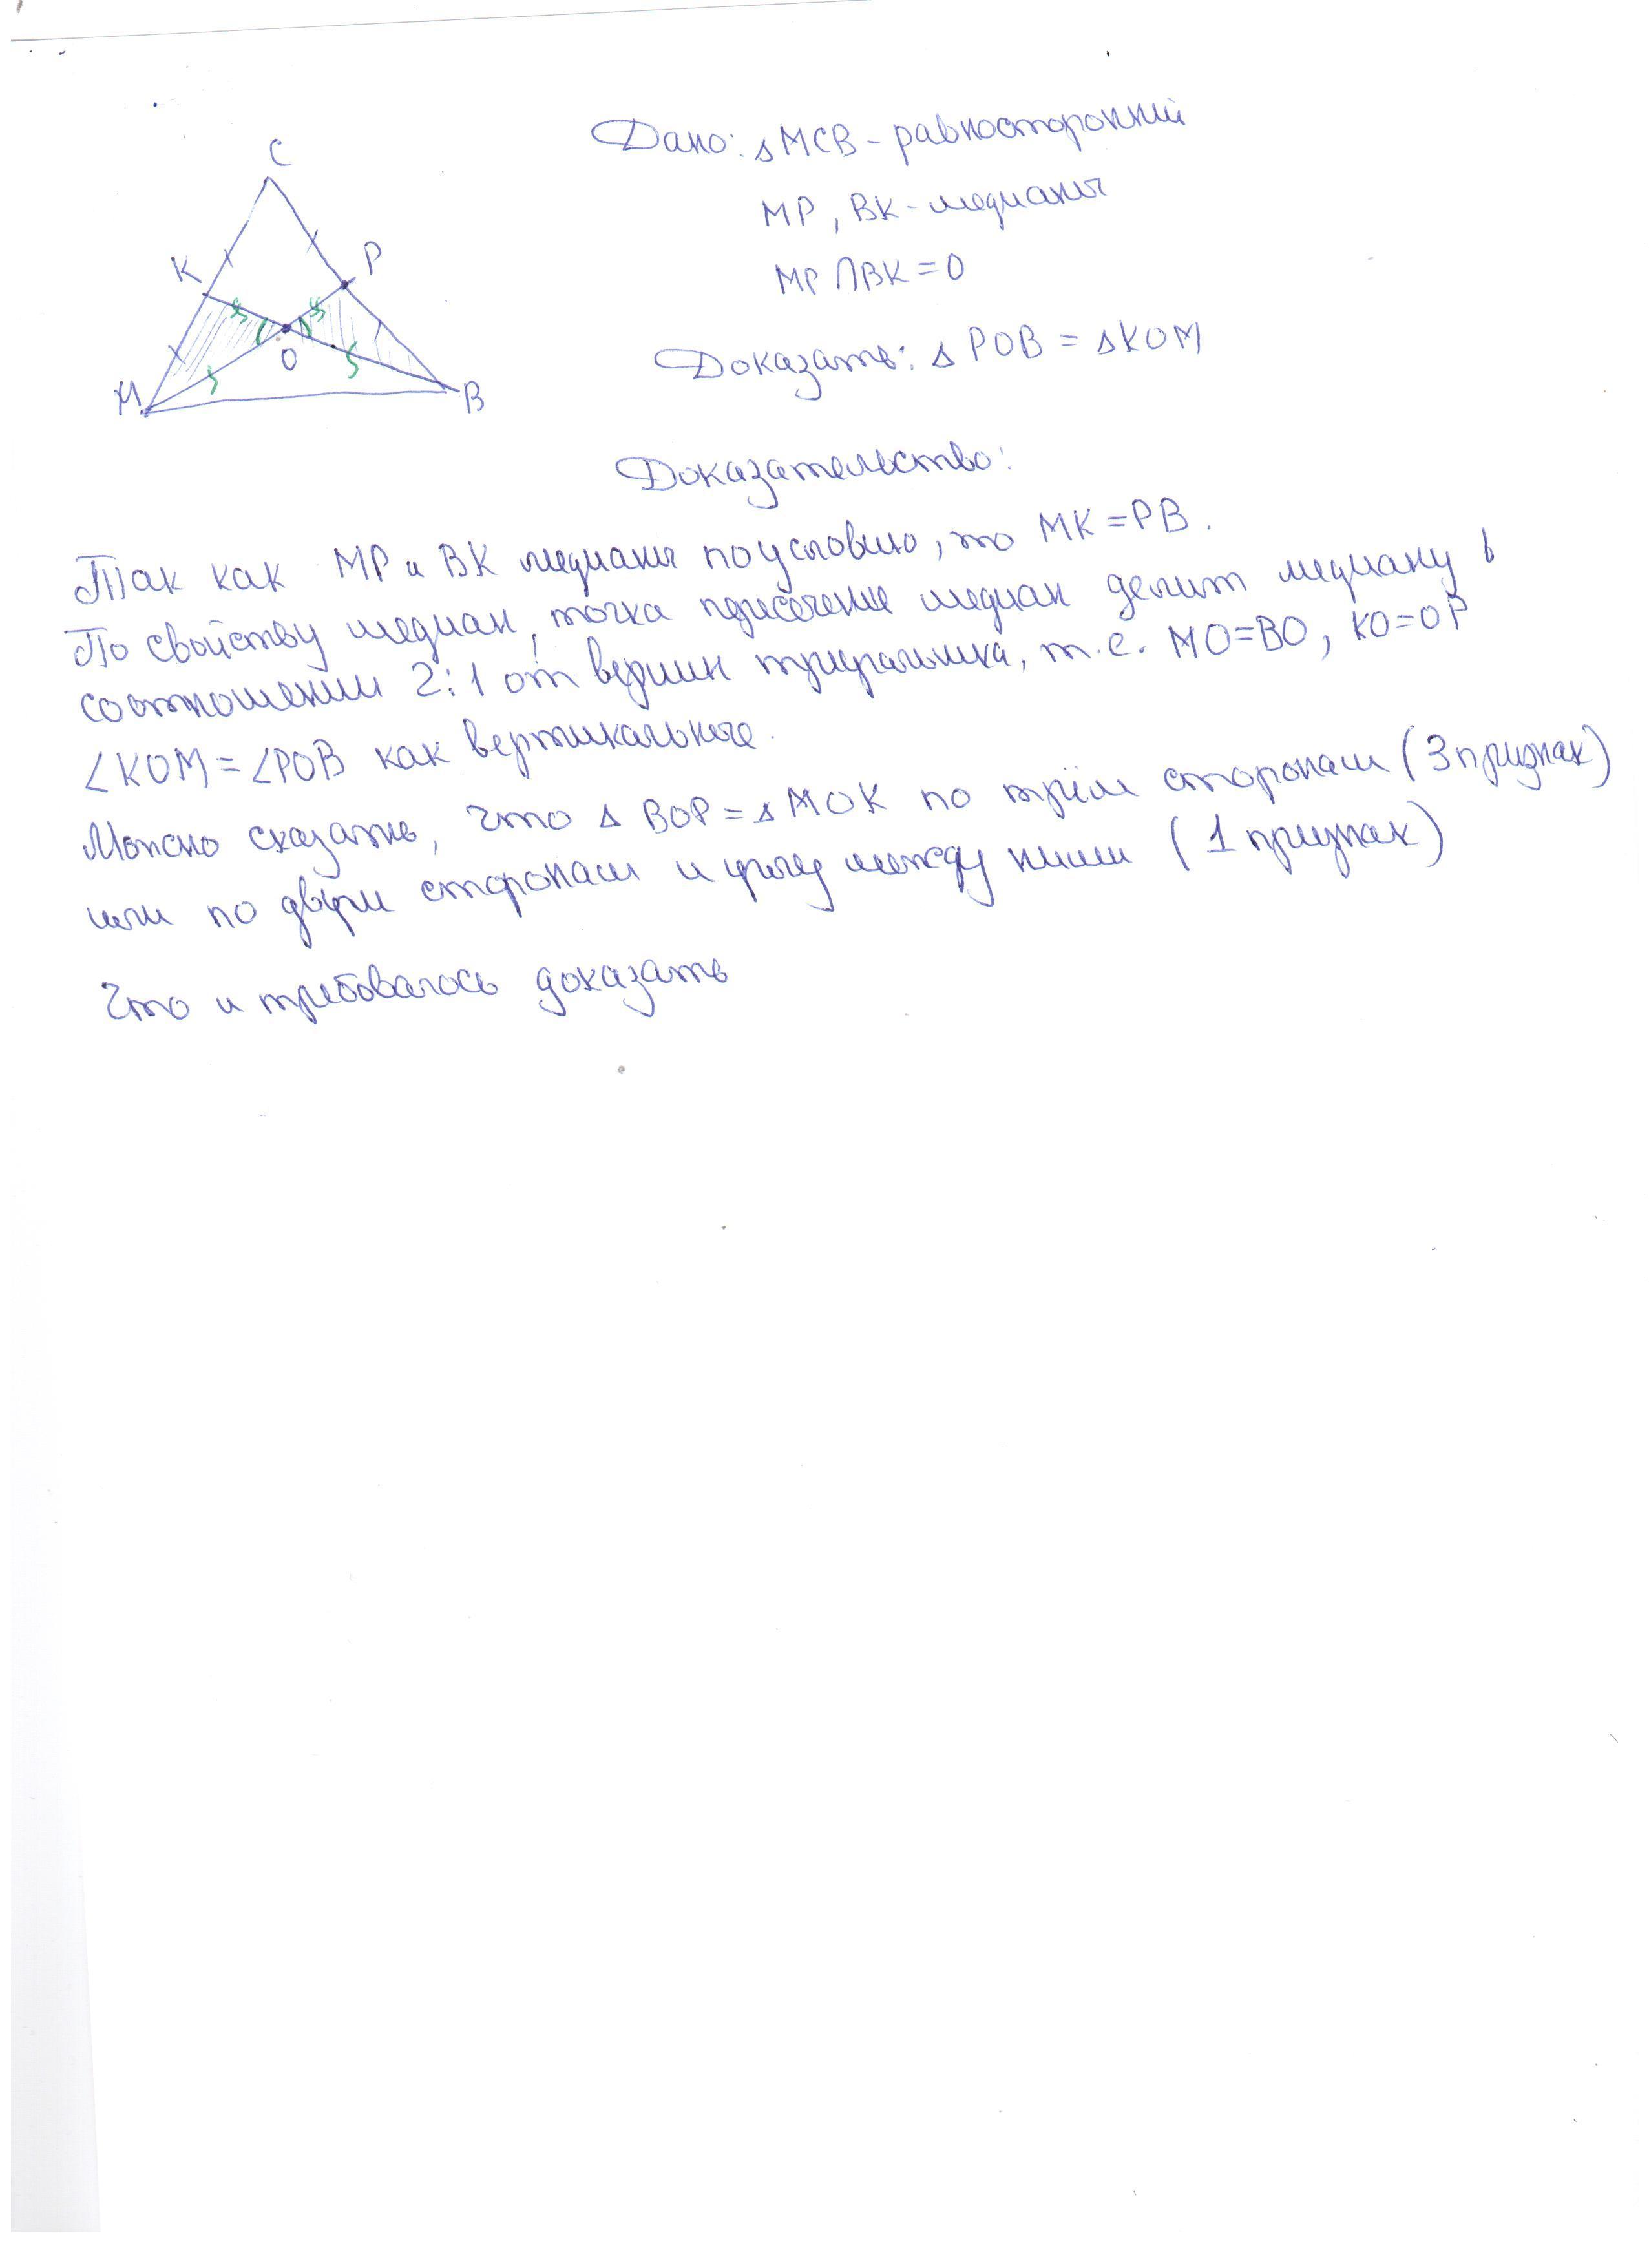 C
K
P
O
M
B
Дано: △MCB - равносторонний
MP, BK - медианы
MP ∩ BK = O
Доказать: △POB = △KOM
Доказательство:
Так как MP и BK медианы по условию, то MK = PB.
По свойству медиан, точка пересечение медиан делит медиану в
соотношении 2:1 от вершин треугольника, т.е. MO=BO, KO=OP
∠KOM = ∠POB как вертикальные.
Можно сказать, что △BOP = △MOK по трём сторонам (3 признак)
или по двум сторонам и углу между ними (1 признак)
Что и требовалось доказать